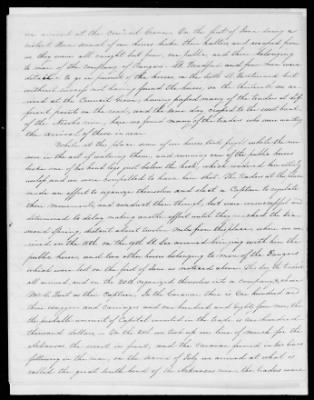 we arrived at the Council Grove. On the first of June during a
violent storm several of our horses broke their halters and rushed from
us they were all caught but four, one public and three belonging
to men of the company of Rangers. Lt. Bradford and four men were
detached to go in pursuit of the horses, on the sixth Lt. returned but
without success not having found the horses, on the thirteenth we arri-
ved at the Council Grove having passed many of the traders at dif-
ferent points on the road, and the same day crossed to the west bank
of the Neosho river, here we found many of the traders who were waiting
the arrival of those in rear.
While at this place some of our horses took fright while the men
were in the act of watering them, and running one of the public horses
broke one of his hind legs just below the hock, which rendered him utterly
useless and we were compelled to have him shot. The traders at this time
made an effort to organize themselves and elect a Captain to regulate
their movements and conduct them through, but were unsuccessful and
determined to delay making another effort until they reached the Dia-
mond Spring, distant about twelve miles from this place, where we ar-
rived on the 18th. On the 19th Lt. arrived bringing with him the
public horse and two other horses belonging to men of the Rangers
which were lost on the first of June as noticed above. This day the traders
all arrived and on the 20th organized themselves into a company &
Mr. as their Captain. In the Caravan there is One hundred and
three waggons and Carriages and one hundred and eighty four men, the
the probable amount of Capital invested in the trade is one hundred
thousand dollars. On the 20th we took up our line of march for the
Arkansas the escort in front, and the Caravan formed in two lines
following in the rear, on the second of July we arrived at what is
called the great South bend of the Arkansas river the traders were